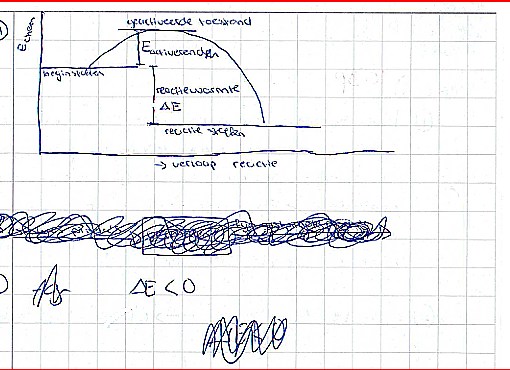 geactiveerde toestand
Echem
Eactiverende
beginstoffen
reactiewarmte
ΔE
reactie stoffen
→ verloop reactie
ΔE < 0